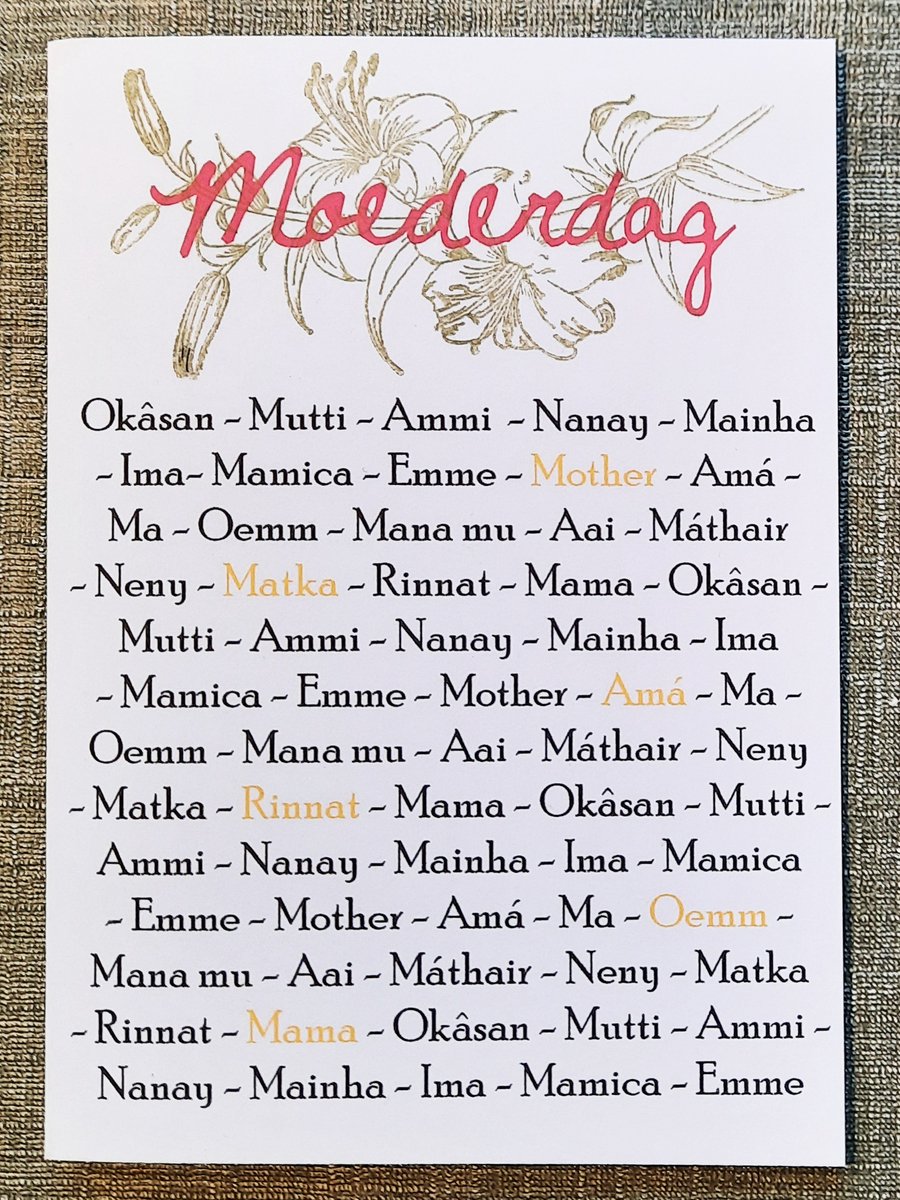 Moederdag
Okâsan ~ Mutti ~ Ammi ~ Nanay ~ Mainha
~ Ima~ Mamica ~ Emme ~ Mother ~ Amá ~
Ma ~ Oemm ~ Mana mu ~ Aai ~ Máthair
~ Neny ~ Matka ~ Rinnat ~ Mama ~ Okâsan ~
Mutti ~ Ammi ~ Nanay ~ Mainha ~ Ima
~ Mamica ~ Emme ~ Mother ~ Amá ~ Ma ~
Oemm ~ Mana mu ~ Aai ~ Máthair ~ Neny
~ Matka ~ Rinnat ~ Mama ~ Okâsan ~ Mutti ~
Ammi ~ Nanay ~ Mainha ~ Ima ~ Mamica
~ Emme ~ Mother ~ Amá ~ Ma ~ Oemm ~
Mana mu ~ Aai ~ Máthair ~ Neny ~ Matka
~ Rinnat ~ Mama ~ Okâsan ~ Mutti ~ Ammi ~
Nanay ~ Mainha ~ Ima ~ Mamica ~ Emme